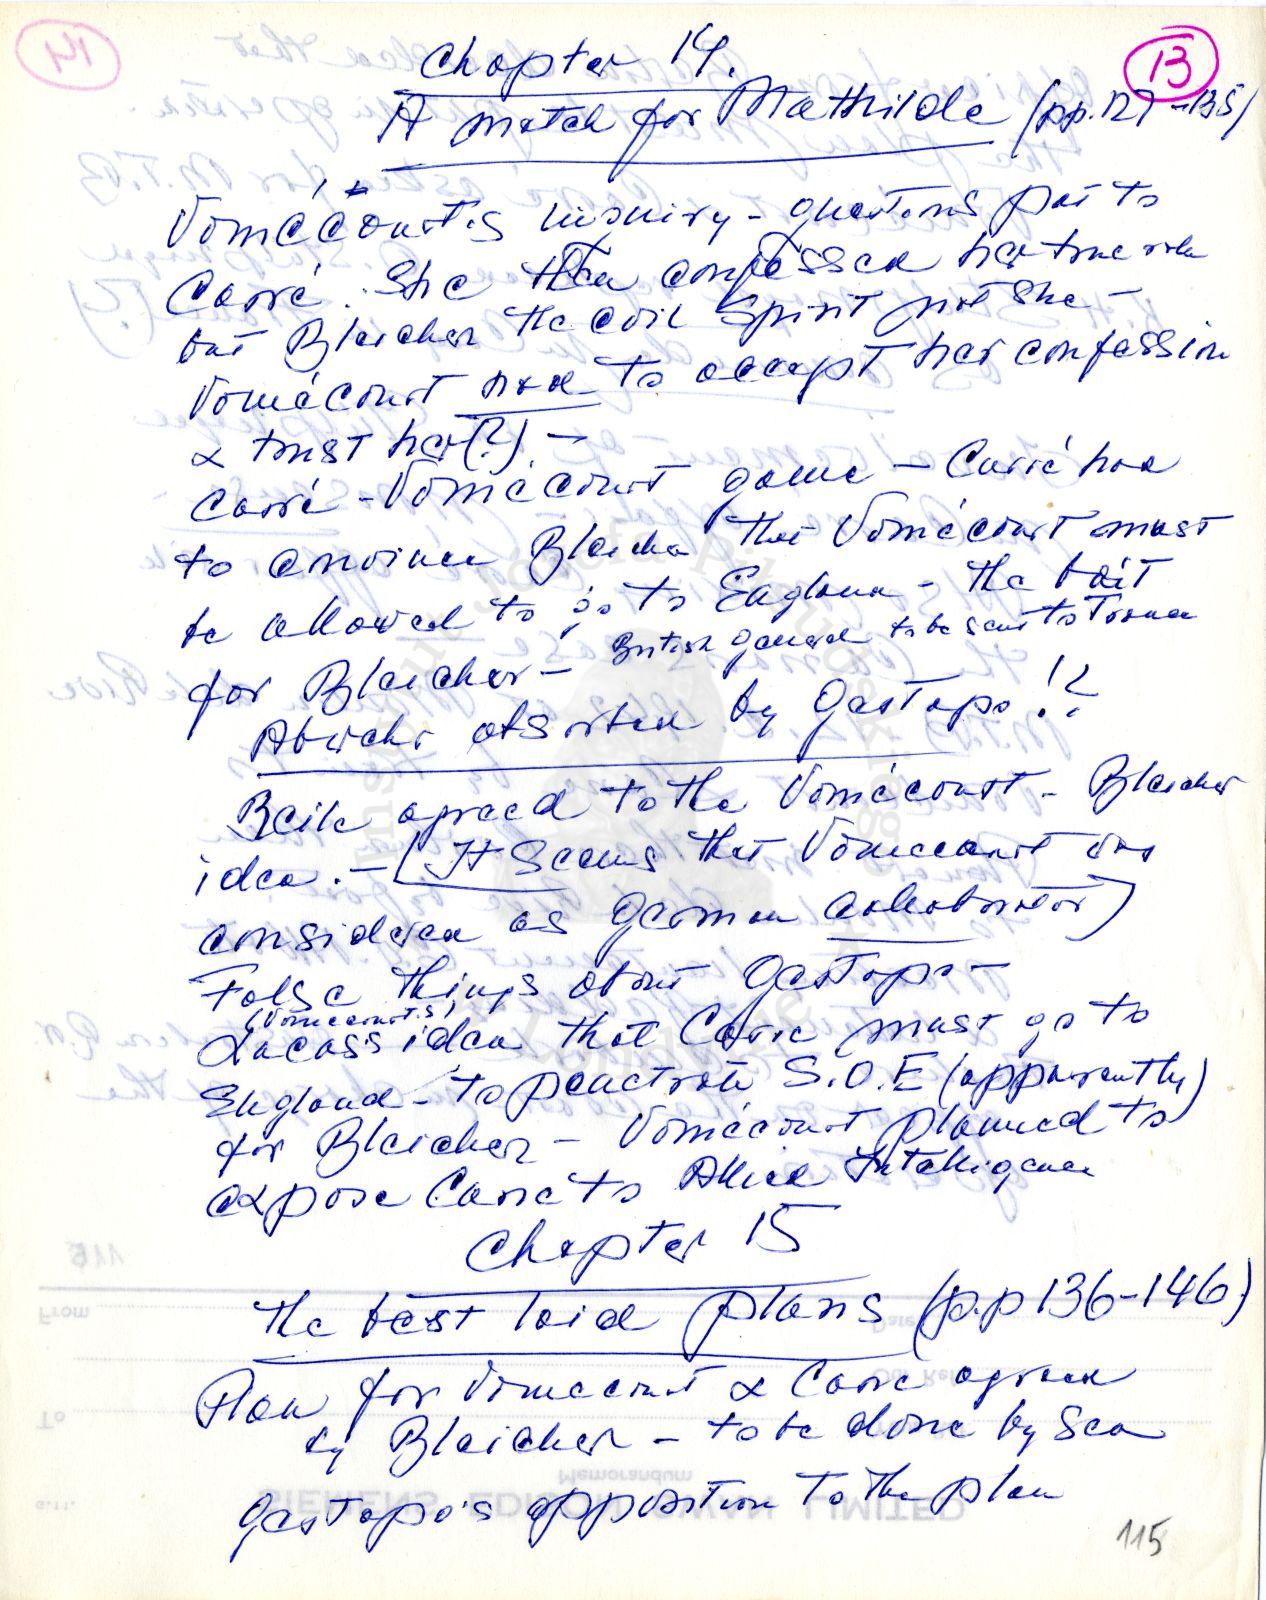 13
Chapter 14.
A match for Mathilde (pp. 127-135)
Vomécourt's inquiry - questions put to
Carré. She then confessed her true role
but Bleicher the evil spirit not she -
Vomécourt had to accept her confession
& trust her (?) -
Carré - Vomécourt game - Carré had
to convince Bleicher that Vomécourt must
be allowed to go to England - the bait
for Bleicher - British general to be sent to France
Abwehr absorbed by Gestapo!?
Reile agreed to the Vomécourt - Bleicher
idea. - [It seems that Vomecourt was
considered as German collaborator]
False things about Gestapo -
(Vomecourt's)
Lucas's idea that Carre must go to
England - to penetrate S.O.E (apparently)
for Bleicher - Vomécourt planned to
expose Carre to Allied Intelligence
Chapter 15
The best laid plans (pp 136-146)
Plan for Vomecourt & Carre agreed
by Bleicher - to be done by sea
Gestapo's opposition to the plan
115